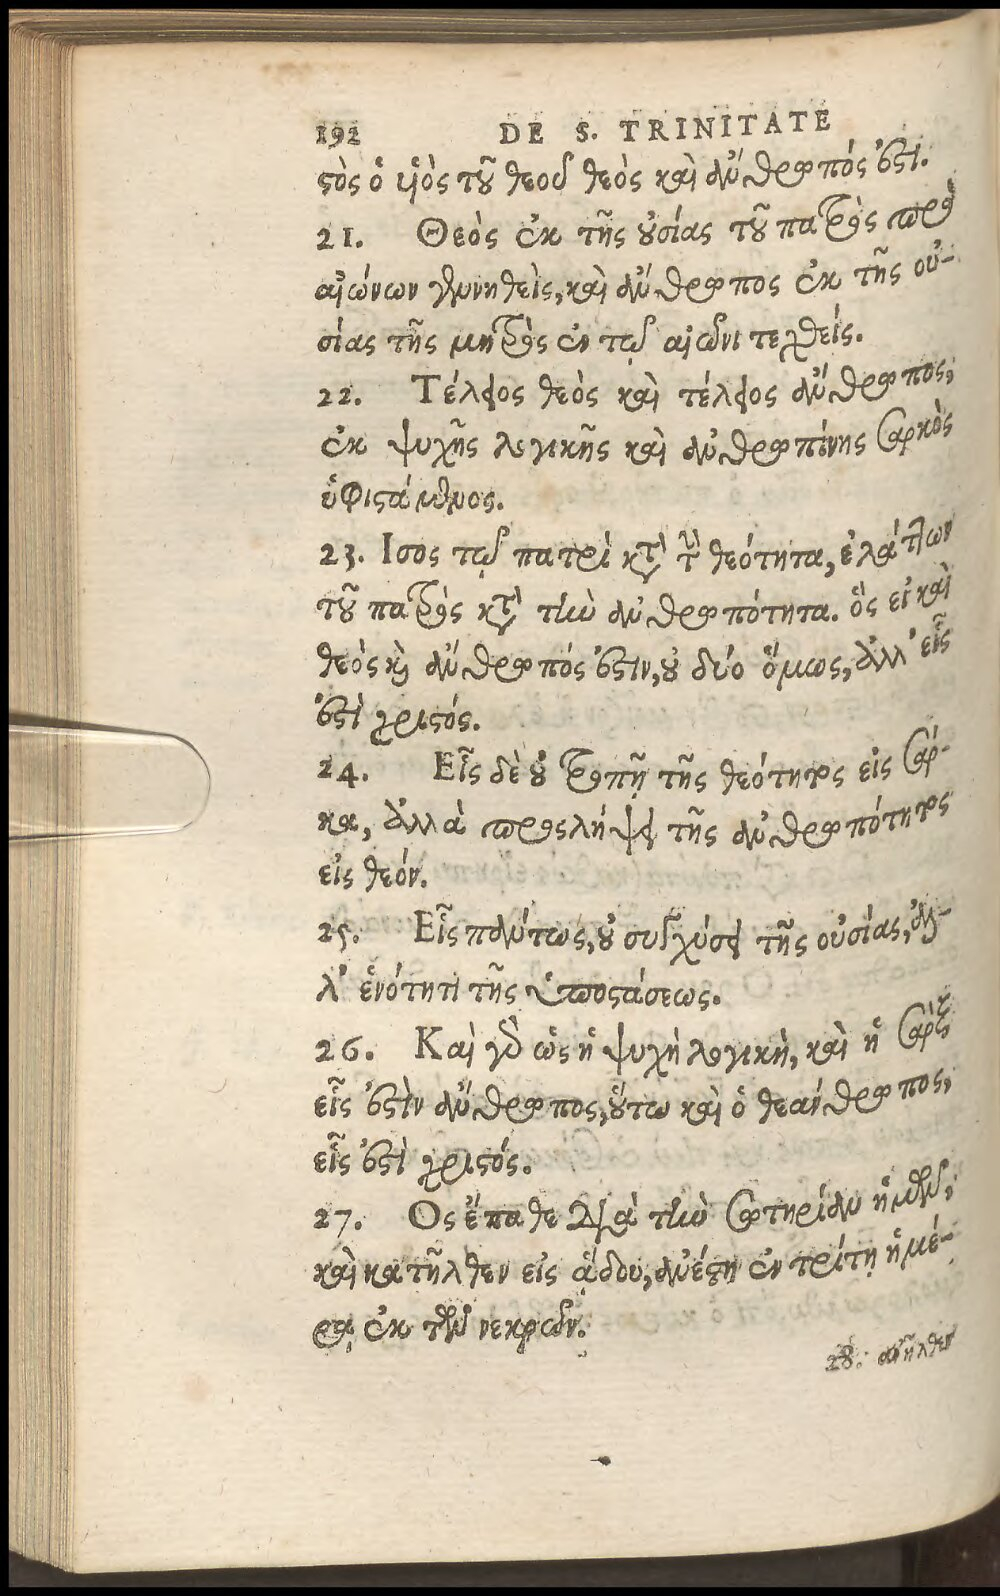 192 DE S. TRINITATE
στὸς ὁ υἱὸς τοῦ θεοῦ θεὸς καὶ ἄνθρωπός ἐστι.
21. Θεὸς ἐκ τῆς οὐσίας τοῦ πατρὸς πρὸ
αἰώνων γεννηθεὶς, καὶ ἄνθρωπος ἐκ τῆς οὐ-
σίας τῆς μητρὸς ἐν τῷ αἰῶνι τεχθείς.
22. Τέλειος θεὸς καὶ τέλειος ἄνθρωπος,
ἐκ ψυχῆς λογικῆς καὶ ἀνθρωπίνης σαρκὸς
ὑφιστάμενος.
23. Ισος τῷ πατρὶ κατὰ τὴν θεότητα, ἐλάττων
τοῦ πατρὸς κατὰ τὴν ἀνθρωπότητα. ὃς εἰ καὶ
θεὸς καὶ ἄνθρωπός ἐστιν, οὐ δύο ὅμως, ἀλλ' εἷς
ἐστὶ χριστός.
24. Εἷς δὲ οὐ τροπῇ τῆς θεότητος εἰς σάρ-
κα, ἀλλὰ προσλήψει τῆς ἀνθρωπότητος
εἰς θεόν.
25. Εἷς πάντως, οὐ συγχύσει τῆς οὐσίας, ἀλ-
λ' ἑνότητι τῆς ὑποστάσεως.
26. Καὶ γὰρ ὡς ἡ ψυχὴ λογικὴ, καὶ ἡ σὰρξ
εἷς ἐστὶν ἄνθρωπος, οὕτω καὶ ὁ θεάνθρωπος,
εἷς ἐστὶ χριστός.
27. Ος ἔπαθε διὰ τὴν σωτηρίαν ἡμῶν,
καὶ κατῆλθεν εἰς ᾅδου, ἀνέστη ἐν τρίτῃ ἡμέ-
ρᾳ ἐκ τῶν νεκρῶν.
28. ἀνῆλθεν